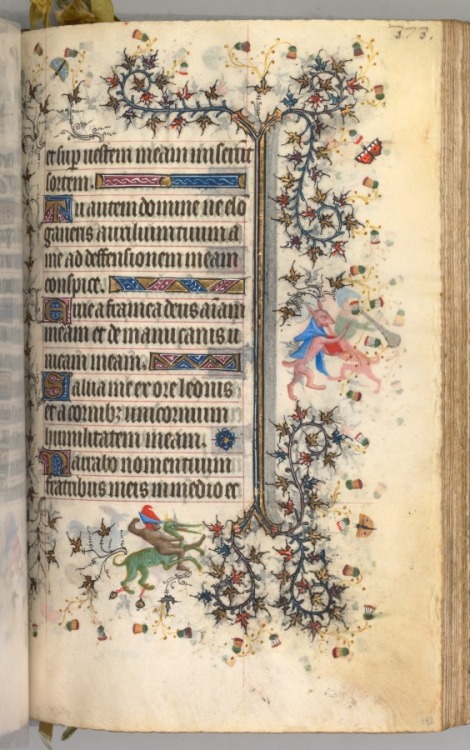 373.
et sup uestem meam miserūt
sortem.
Tu autem domine ne elo
gaueris auxilium tuum a
me ad deffensionem meam
conspice.
Erue a framea deus aīam
meam et de manu canis u
nicam meam.
Salua me ex ore leonis
et a cornibȝ unicornium
humilitatem meam.
Narrabo nomen tuum
fratribus meis in medio ec